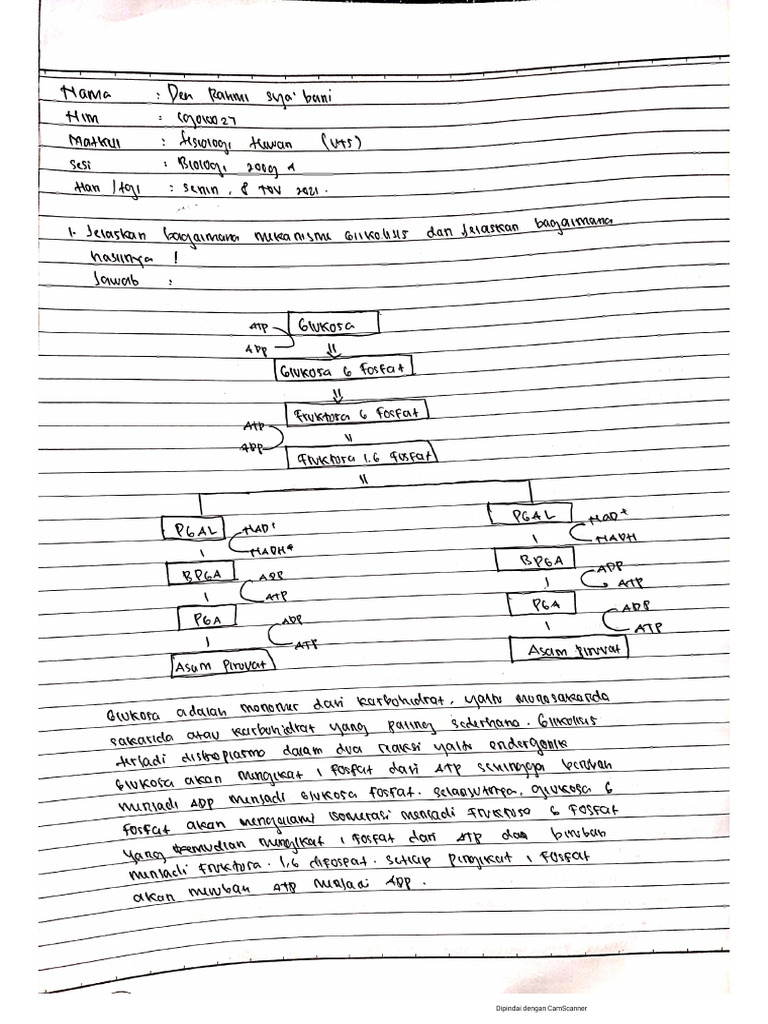 Nama : Den Rahmi Sya'bani
Nim :
Matkul : Fisiologi Hewan (UTS)
Sesi : Biologi
Hari /tgl : Senin, 8 Nov 2021.
1. Jelaskan bagaimana mekanisme Glikolisis dan Jelaskan bagaimana
hasilnya !
Jawab :
ATP Glukosa
ADP
Glukosa 6 Fosfat
Fruktosa 6 Fosfat
ATP
ADP Fruktosa 1.6 Fosfat
PGAL NAD+ PGAL NAD+
NADH+ NADH
BPGA ADP BPGA ADP
ATP ATP
PGA ADP PGA ADP
ATP ATP
Asam Piruvat Asam Piruvat
Glukosa adalah monomer dari karbohidrat, yaitu monosakarida
sakarida atau karbohidrat yang paling sederhana. Glikolisis
terjadi disitoplasma dalam dua reaksi yaitu endergonik
Glukosa akan mengikat 1 fosfat dari ATP sehingga berubah
menjadi ADP menjadi Glukosa fosfat. selanjutnya, glukosa 6
fosfat akan mengalami isomerasi menjadi fruktosa 6 fosfat
yang kemudian mengikat 1 fosfat dari ATP dan berubah
menjadi fruktosa. 1,6 difospat. setiap pengikat 1 fosfat
akan merubah ATP menjadi ADP.
Dipindai dengan CamScanner